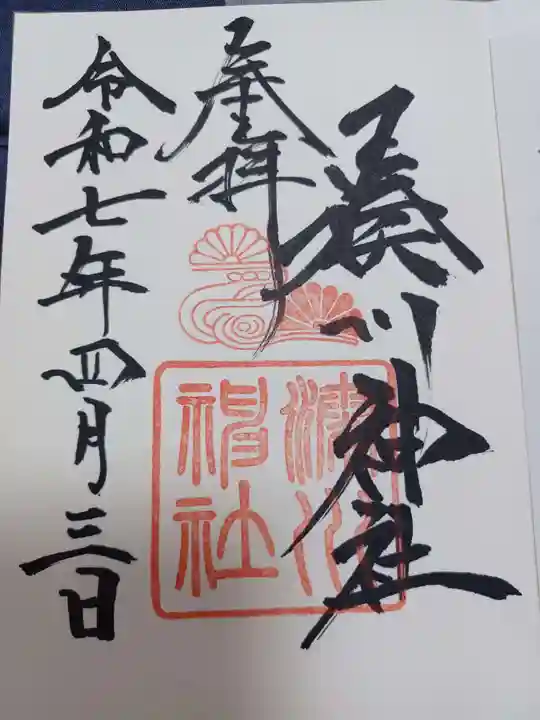 湊川神社
奉拝
令和七年四月三日
湊川
神社